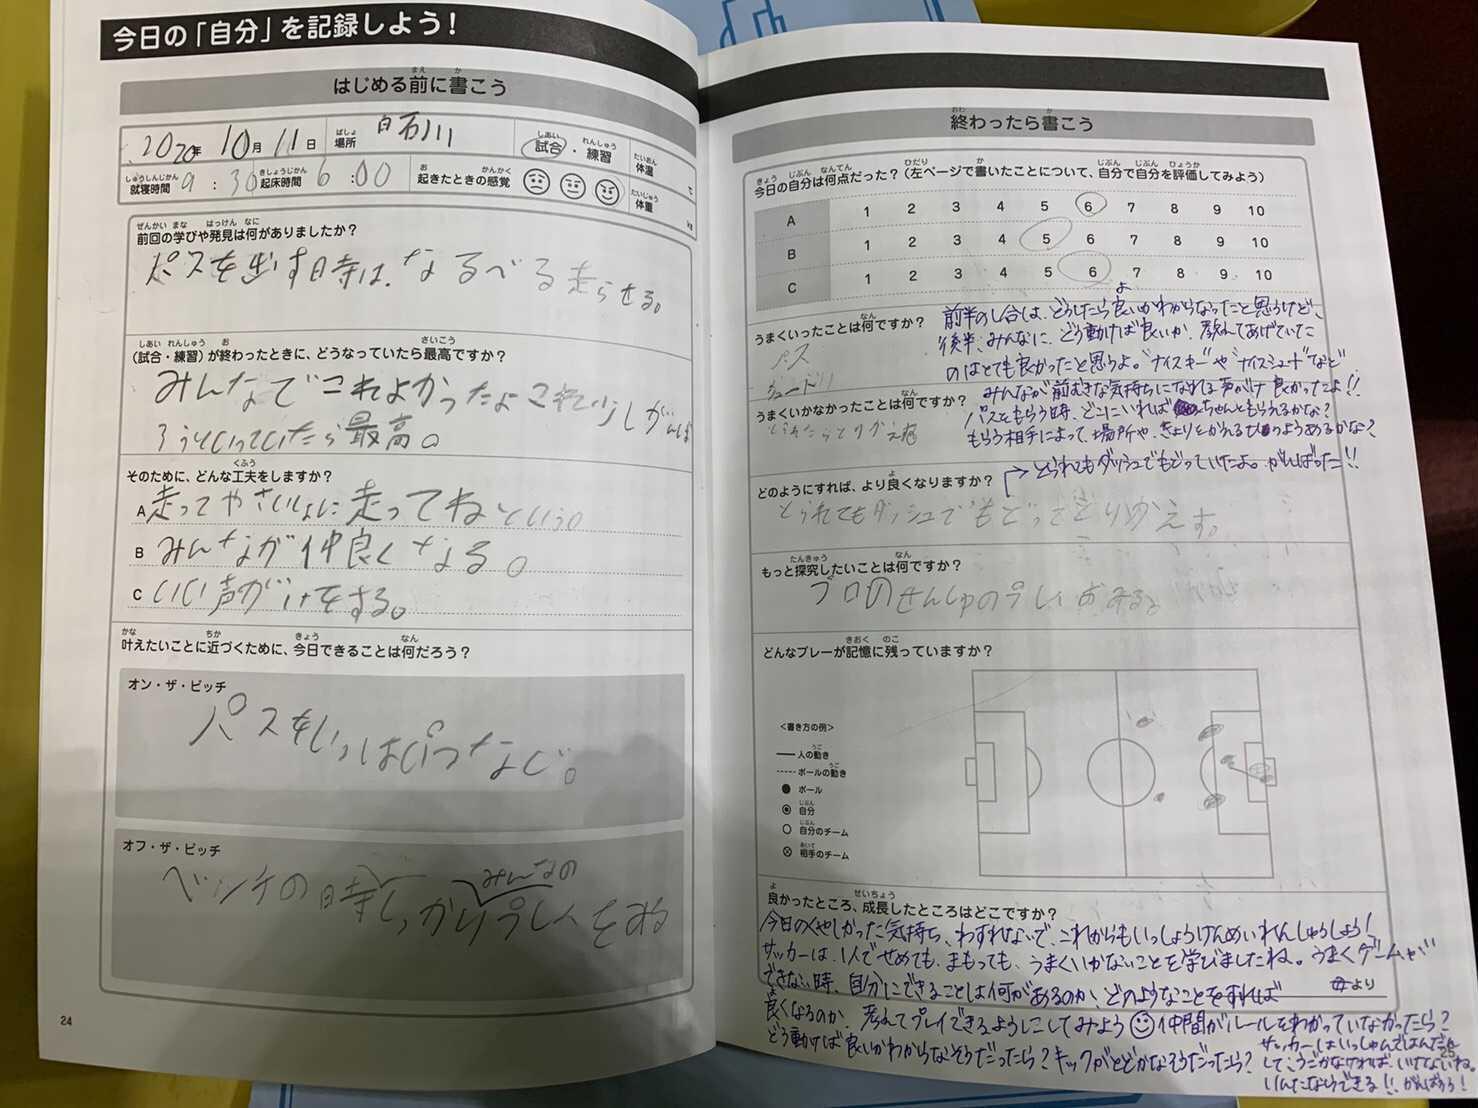 今日の「自分」を記録しよう!
はじめる前に書こう
2020年 10月 11日 場所 白石川 試合・練習 体温 ℃
就寝時間 9:30 起床時間 6:00 起きたときの感覚 体重 kg
前回の学びや発見は何がありましたか?
パスを出す時は、なるべる走らせる。
(試合・練習)が終わったときに、どうなっていたら最高ですか?
みんなでこれよかったよ
っていったら最高。
そのために、どんな工夫をしますか?
A 走ってやさいしょに走ってねという。
B みんなが仲良くなる。
C いい声がけをする。
叶えたいことに近づくために、今日できることは何だろう?
オン・ザ・ピッチ
パスをいっぱいつなぐ。
オフ・ザ・ピッチ
みんなの
ベンチの時しっかりプレーをみる
24
終わったら書こう
今日の自分は何点だった?(左ページで書いたことについて、自分で自分を評価してみよう)
A 1 2 3 4 5 6 7 8 9 10
B 1 2 3 4 5 6 7 8 9 10
C 1 2 3 4 5 6 7 8 9 10
うまくいったことは何ですか?
パス
シュート
前半のし合は、どうしたら良いかわからなかったと思うけど、
後半、みんなに、どう動けば良いか、教えてあげていた
のはとても良かったと思うよ。"ナイスキー"や"ナイスシュート"など
みんなが前むきな気持ちになれる声がけ良かったよ!!
うまくいかなかったことは何ですか?
とられたらとりかえす
パスをもらう時、どこにいればちゃんともらえるかな?
もらう相手によって、場所や、きょりをかえるひつようあるかな?
どのようにすれば、より良くなりますか?
→とられてもダッシュでもどっていたよ。がんばった!!
とられてもダッシュでもどってとりかえす。
もっと探究したいことは何ですか?
プロのせんしゅのプレーをみる。
どんなプレーが記憶に残っていますか?
<書き方の例>
人の動き
ボールの動き
ボール
自分
自分のチーム
相手のチーム
良かったところ、成長したところはどこですか?
今日のくやしかった気持ち、わすれないで、これからもいっしょうけんめいれんしゅうしよう!
サッカーは、1人でせめても、まもっても、うまくいかないことを学びましたね。うまくゲームが
できない時、自分にできることは何があるのか、どのようなことをすれば
母より
良くなるのか、考えてプレイできるようにしてみよう 仲間がルールをわかっていなかったら?
どう動けば良いかわからなそうだったら?キックがとどかなそうだったら?
サッカーはいっしゅんではんだん
して、うごかなければ、いけないね。
できる!!がんばろう!
25